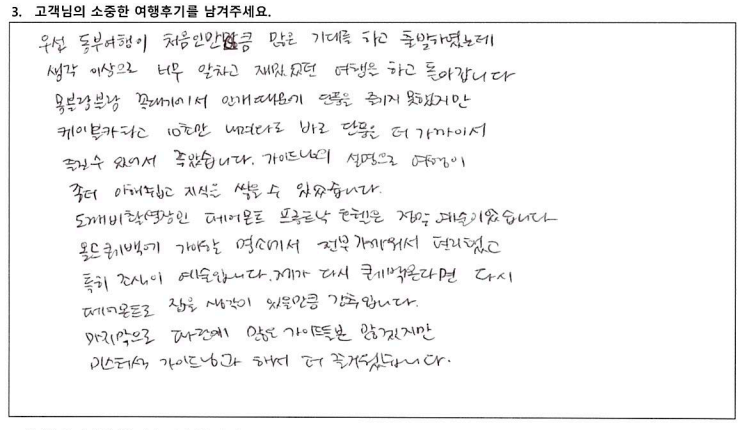 3. 고객님의 소중한 여행후기를 남겨주세요.
우선 동부여행이 처음인만큼 많은 기대를 하고 출발하였는데
생각 이상으로 너무 알차고 재밌었던 여행을 하고 돌아갑니다
몽블랑블랑 꼭대기에서 안개때문에 단풍을 즐기지 못했지만
케이블카타고 10초만 내려다로 바로 단풍을 더 가까이서
즐길수 있어서 좋았습니다. 가이드님의 설명으로 여행이
좀더 이해쉽고 지식을 쌓을 수 있었습니다.
도깨비촬영장인 페어몬트 프롱트낙 호텔은 정말 예술이었습니다
올드퀘백에 가야할 명소에서 전부가까워서 편리했고
특히 조식이 예술입니다. 제가 다시 퀘백온다면 다시
페어몬트로 잡을 생각이 있을만큼 강추입니다.
마지막으로 따른에 많은 가이드들분 많겠지만
미스테리 가이드님과 해서 더 즐거웠답니다.